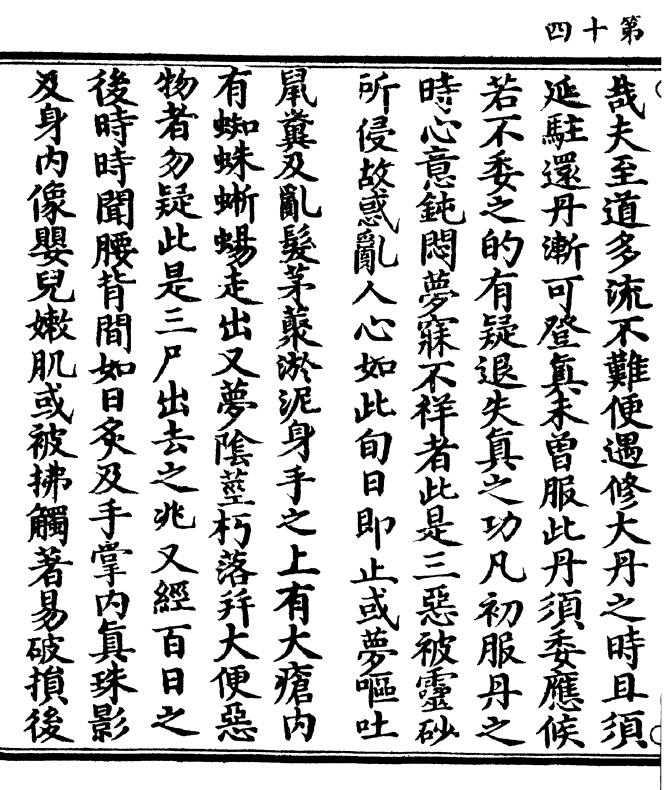 第十四
哉夫至道多流不難便遇修大丹之時且須
延駐還丹漸可登真未曾服此丹須委應候
若不委之的有疑退失真之功凡初服丹之
時心意鈍悶夢寐不祥者此是三惡被靈砂
所侵故惑亂人心如此旬日即止或夢嘔吐
鼠糞及亂髮茅藂淤泥身手之上有大瘡内
有蜘蛛蜥蜴走出又夢陰莖朽落并大便惡
物者勿疑此是三尸出去之兆又經百日之
後時時聞腰背間如日炙及手掌内真珠影
及身内像嬰兒嫩肌或被拂觸著易破損後